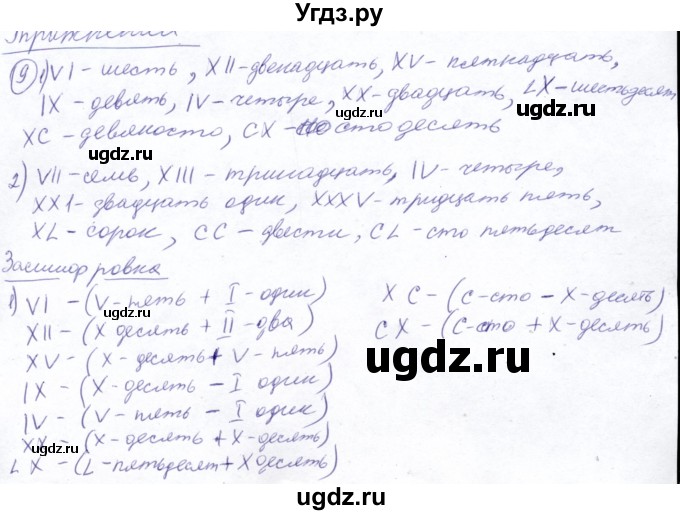 Угдз.ру
Упражнения
9 1) VI - шесть, XII - двенадцать, XV - пятнадцать,
IX - девять, IV - четыре, XX - двадцать, LX - шестьдесят
XC - девяносто, CX - сто десять
2) VII - семь, XIII - тринадцать, IV - четыре,
XXI - двадцать один, XXXV - тридцать пять,
XL - сорок, CC - двести, CL - сто пятьдесят
Засшифровка
1) VI - (V - пять + I - один)
XII - (X десять + II - два)
XV - (X - десять + V - пять)
IX - (X - десять - I один)
IV - (V - пять - I один)
XX - (X - десять + X - десять)
LX - (L - пятьдесят + X десять)
XC - (C - сто - X - десять)
CX - (C - сто + X - десять)
ugdz.ru
ugdz.ru
ugdz.ru
ugdz.ru
ugdz.ru
ugdz.ru
ugdz.ru
ugdz.ru